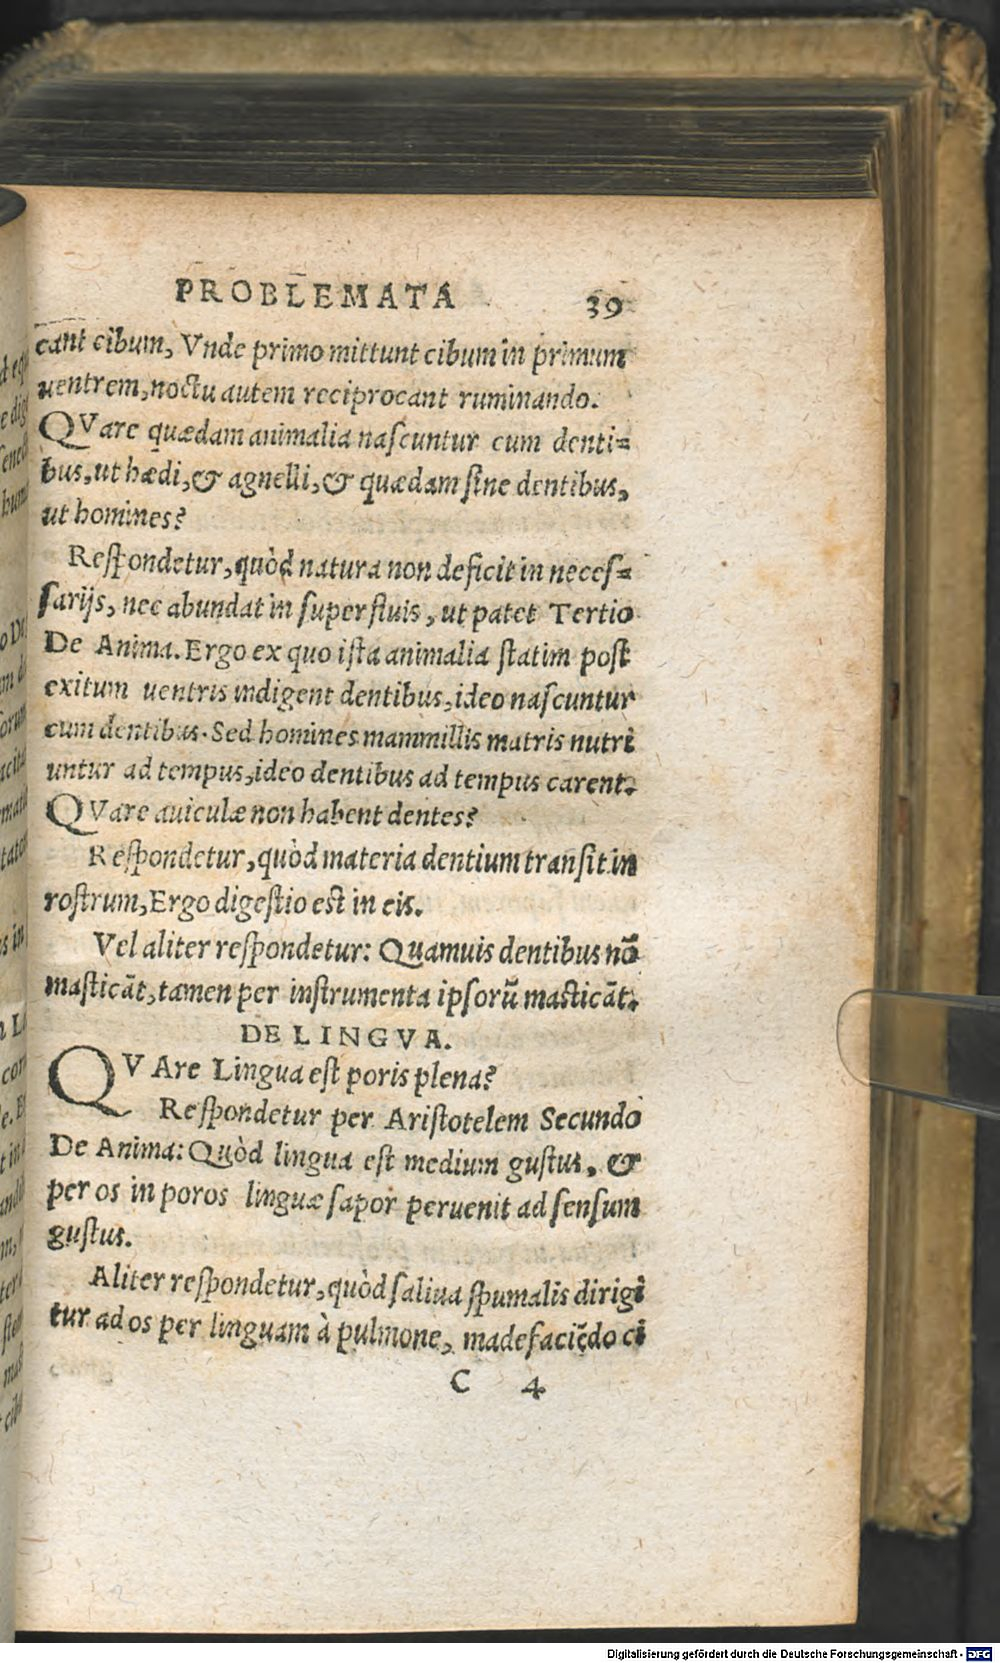 PROBLEMATA 39
cant cibum, Vnde primo mittunt cibum in primum
uentrem, noctu autem reciprocant ruminando.
QVare quædam animalia naſcuntur cum denti=
bus, ut hædi, & agnelli, & quædam ſine dentibus,
ut homines?
Reſpondetur, quòd natura non deficit in neceſ=
ſarijs, nec abundat in ſuperfluis, ut patet Tertio
De Anima. Ergo ex quo iſta animalia ſtatim poſt
exitum uentris indigent dentibus, ideo naſcuntur
cum dentibus. Sed homines mammillis matris nutri
untur ad tempus, ideo dentibus ad tempus carent.
QVare auiculæ non habent dentes?
Reſpondetur, quòd materia dentium tranſit in
roſtrum, Ergo digeſtio eſt in eis.
Vel aliter reſpondetur: Quamuis dentibus nō
maſticāt, tamen per inſtrumenta ipſorū maſticāt.
DE LINGVA.
QVAre Lingua eſt poris plena?
Reſpondetur per Ariſtotelem Secundo
De Anima: Quòd lingua eſt medium guſtus, &
per os in poros linguæ ſapor peruenit ad ſenſum
guſtus.
Aliter reſpondetur, quòd ſaliua ſpumalis dirigi
tur ad os per linguam à pulmone, madefaciēdo ci
C 4
Digitalisierung gefördert durch die Deutsche Forschungsgemeinschaft - DFG